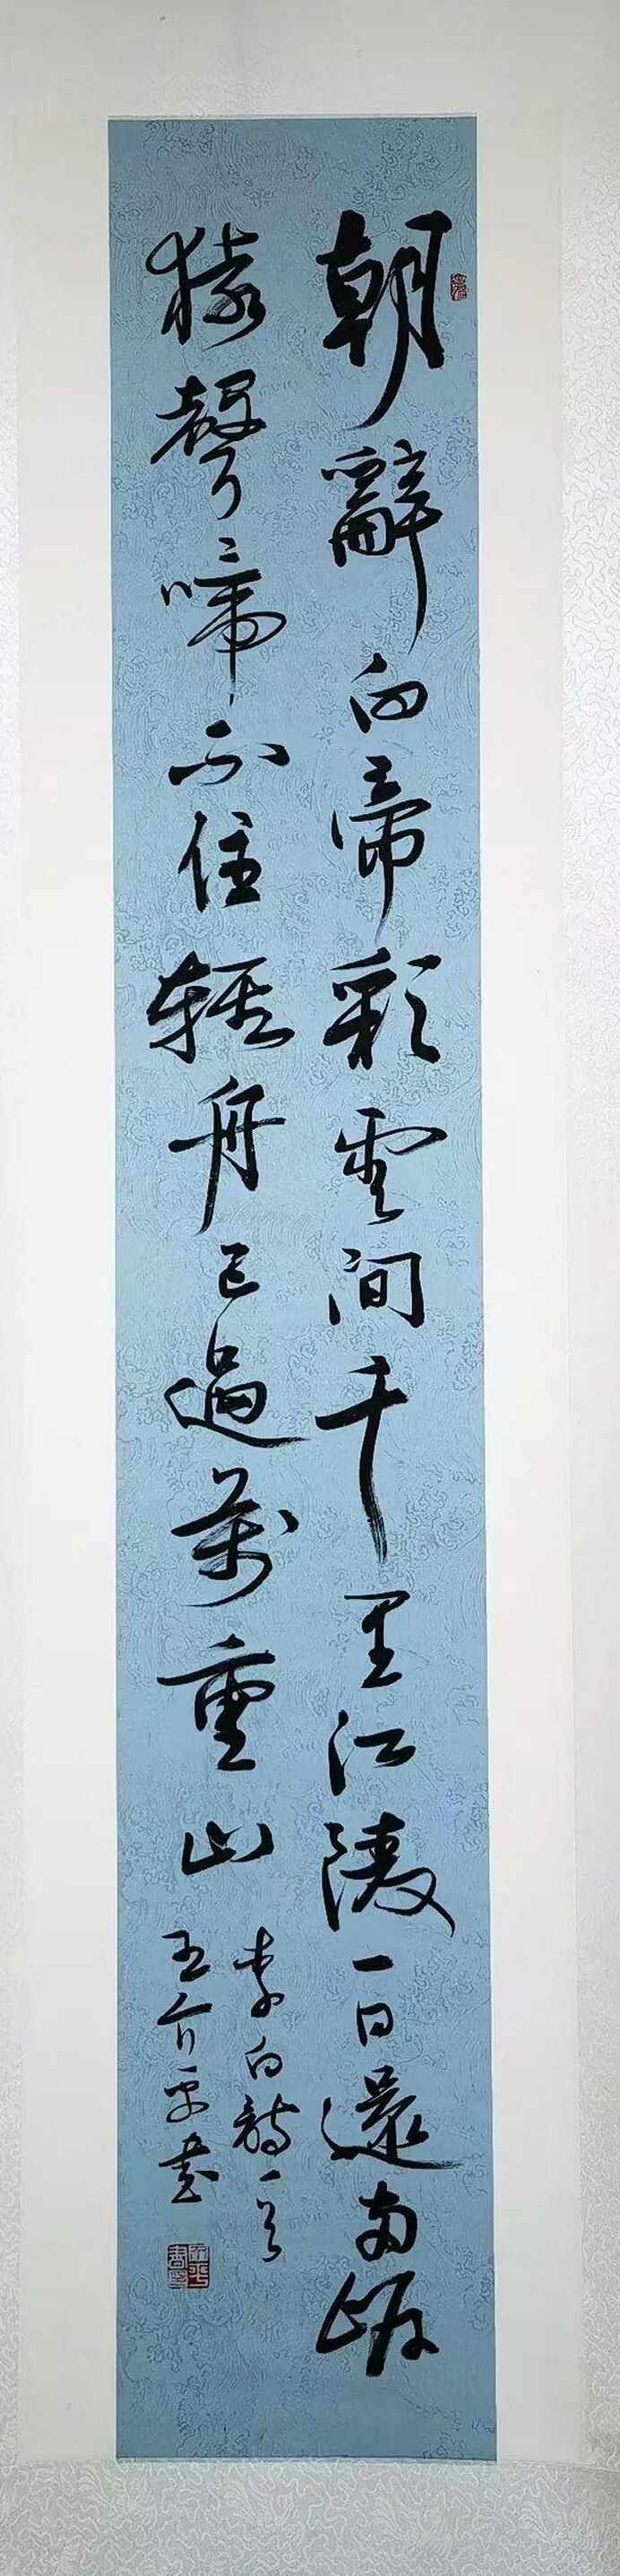 朝辭白帝彩雲間千里江陵一日還兩岸
猿聲啼不住輕舟已過萬重山
李白詩一首
王介平書